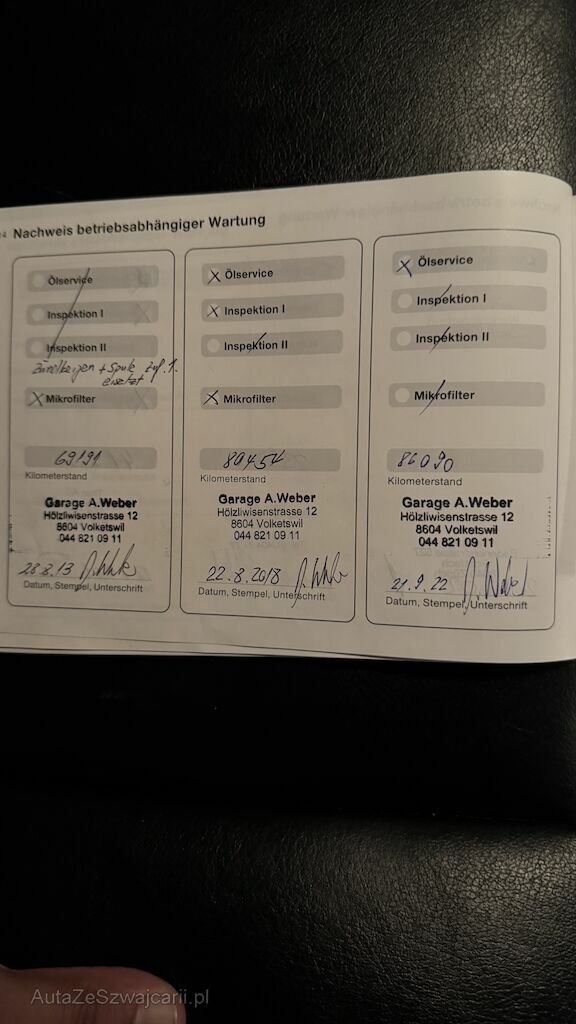 Nachweis betriebsabhängiger Wartung
Ölservice
Inspektion I
Inspektion II
Zündkerzen + Spule Zyl. 1.
ersetzt
Mikrofilter
69191
Kilometerstand
Garage A.Weber
Hölzliwisenstrasse 12
8604 Volketswil
044 821 09 11
28.8.13
Datum, Stempel, Unterschrift
Ölservice
Inspektion I
Inspektion II
Mikrofilter
80454
Kilometerstand
Garage A.Weber
Hölzliwisenstrasse 12
8604 Volketswil
044 821 09 11
22.8.2018
Datum, Stempel, Unterschrift
Ölservice
Inspektion I
Inspektion II
Mikrofilter
86090
Kilometerstand
Garage A.Weber
Hölzliwisenstrasse 12
8604 Volketswil
044 821 09 11
21.9.22
Datum, Stempel, Unterschrift
AutaZeSzwajcarii.pl